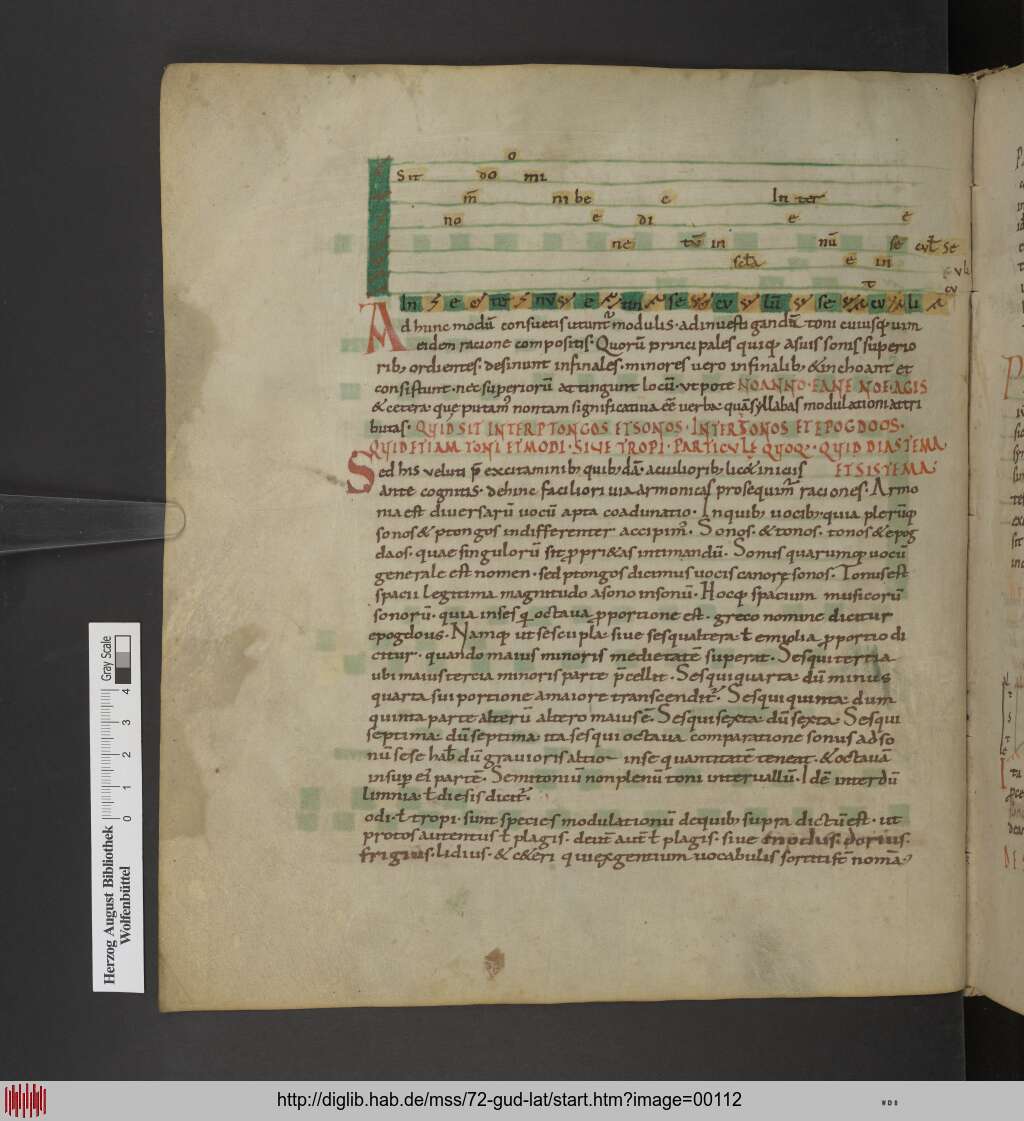 o
Sit do mi
m̄ ni be e In ter
no e di e e
ne tū in nū se cul̄ se
sc̄la e in
In e ter nū e in se cu lū se cu li
Ad hunc modū consuetis utunt᷑ modulis · ad inuestigandū toni cuiusq; uim
eiden racione compositis · Quorū principales quiq; a suis sonis superio
rib; ordientes · desinunt in finales · minores uero in finalib; & inchoant et
consistunt · nec superiorū attingunt locū · ut pote NOANNO·EANE NOE·AGIS
& cetera · que putam᷒ non tam significatiua eē uerba quā syllabas modulationi attri
butas · QUID SIT INTER PTONGOS ET SONOS · INTER TONOS ET EPOGDOOS ·
QUID ETIAM TONI ET MODI · SIUE TROPI · PARTICULĘ QUOQ; · QUID DIASTEMA
Sed his ueluti p̄ excitaminib; quib; dā · acuiliorib; lic& iniciis ET SISTEMA·
ante cognitas · dehinc faciliori uia armonicas prosequim᷑ raciones · Armo
nia est diuersarū uocū apta coadunatio · In quib; uocib; quia plerūq;
sonos & ptongos indifferenter accipim᷒ · Sonos · & tonos · tonos & epog
doos · quae singulorū sit ppri&as intimandū · Sonus quarumq; uocū
generale est nomen · sed ptongos dicimus uocis canorę sonos · Tonus est
spacii legitima magnitudo a sono in sonū · Hocq; spacium musicorū
sonorū · quia in sesq octaua pportione est · greco nomine dicitur
epogdous · Namq; ut sescupla · siue sesqualtera ł emiolia pportio di
citur · quando maius minoris medietatē superat · Sesquitertia
ubi maius tercia minoris parte p̄cellit · Sesquiquarta dū minus
quarta sui portione a maiore transcendit᷑ · Sesquiquinta dum
quinta parte alterū altero maius ē · Sesquisexta dū sexta · Sesqui
septima dū septima · ita sesqui octaua comparatione sonus ad so
nū sese hab& dū grauioris altior in se quantitatē teneat · & octauā
insup ei᷒ partē · Semitoniū non plenū toni interuallū · Idē interdū
limma ł diesis dicit᷑ ·
odi · ł tropi · sunt species modulationū de quib; supra dictū est · ut
protos autentus ł plagis · deut aut ł plagis · siue modus dorius ·
frigius · lidius · & c&eri qui ex gentium uocabulis sortiti st̄ nom̄a
Herzog August Bibliothek
Wolfenbüttel
0 1 2 3 4
Gray Scale
http://diglib.hab.de/mss/72-gud-lat/start.htm?image=00112